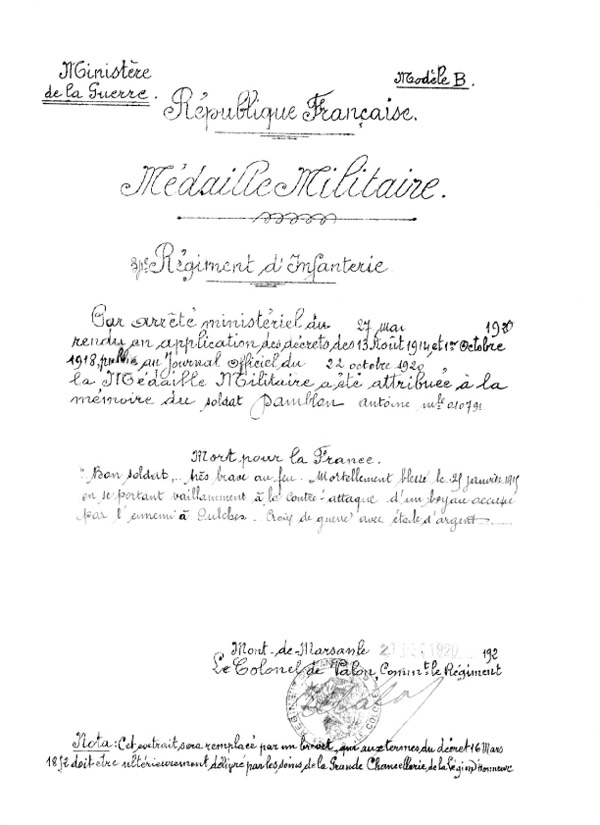 Ministère
de la Guerre.
Modèle B.
République Française.
Médaille Militaire.
Régiment d'Infanterie
Par arrêté ministériel du 27 mai 1920
rendu en application des décrets des 13 Août 1914, et 1er Octobre
1918, publié au Journal Officiel du 22 octobre 1920
la Médaille Militaire a été attribuée à la
mémoire du soldat Damblon antoine mle 01079
Mort pour la France.
"Bon soldat, très brave au feu. Mortellement blessé le 25 janvier 1915
en se portant vaillamment à la contre-attaque d'un boyau occupé
par l'ennemi à Croix de guerre avec étoile d'argent
Mont-de-Marsan le 21 1920 192
Le Colonel de Valon, Commt. le Régiment
Nota: Cet extrait sera remplacé par un brevet, qui aux termes du décret 16 Mars
1852 doit être ultérieurement délivré par les soins de la Grande Chancellerie de la Légion d'Honneur